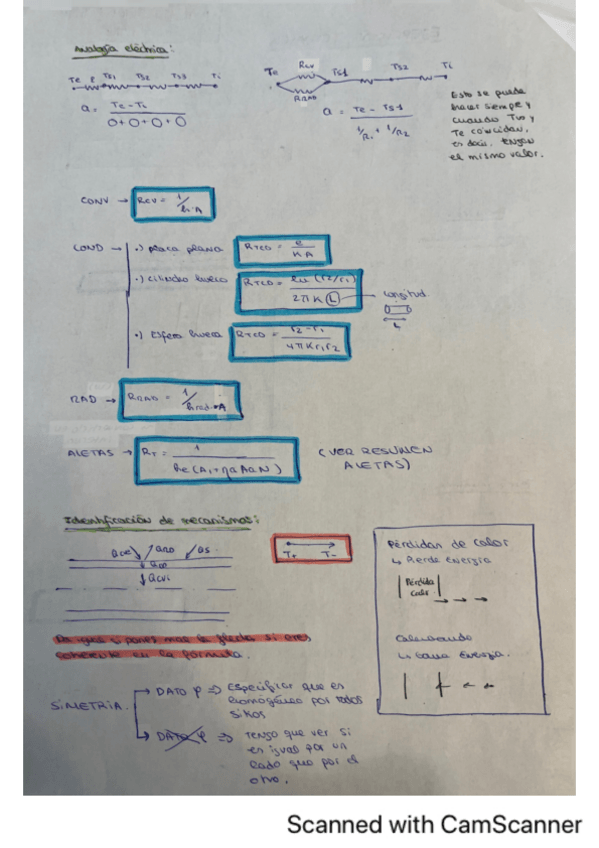 Analogía eléctrica:
Te TS1 TS2 TS3 Ti
Q = Te - Ti / 0 + 0 + 0 + 0
Te Rcv RRAD TS1 TS2 Ti
Q = Te - TS1 / 1/R1 + 1/R2
Esto se puede
hacer siempre y
cuando T∞ y
Te coincidan,
es decir, tengan
el mismo valor.
CONV → Rcv = 1/h·A
COND → ·) placa plana RTCD = e / KA
·) cilindro hueco RTCD = ln (r2/r1) / 2πK L → longitud
L
·) Esfera hueca RTCD = r2 - r1 / 4πKr1r2
RAD → RRAD = 1/hrad·A
ALETAS → RT = 1 / he(A1+ηaAaN) (VER RESUMEN
ALETAS)
Identificación de mecanismos:
T+ T-
Pérdidas de calor
↳ Pierde Energía
Pérdida
calor
Calentando
↳ Gana Energía.
Da igual
coherente en la fórmula.
SIMETRIA.
→ DATO φ ⇒ Especificar que es
homogéneo por todos
sitios
→ DATO φ ⇒ Tengo que ver si
es igual por un
lado que por el
otro.
Scanned with CamScanner